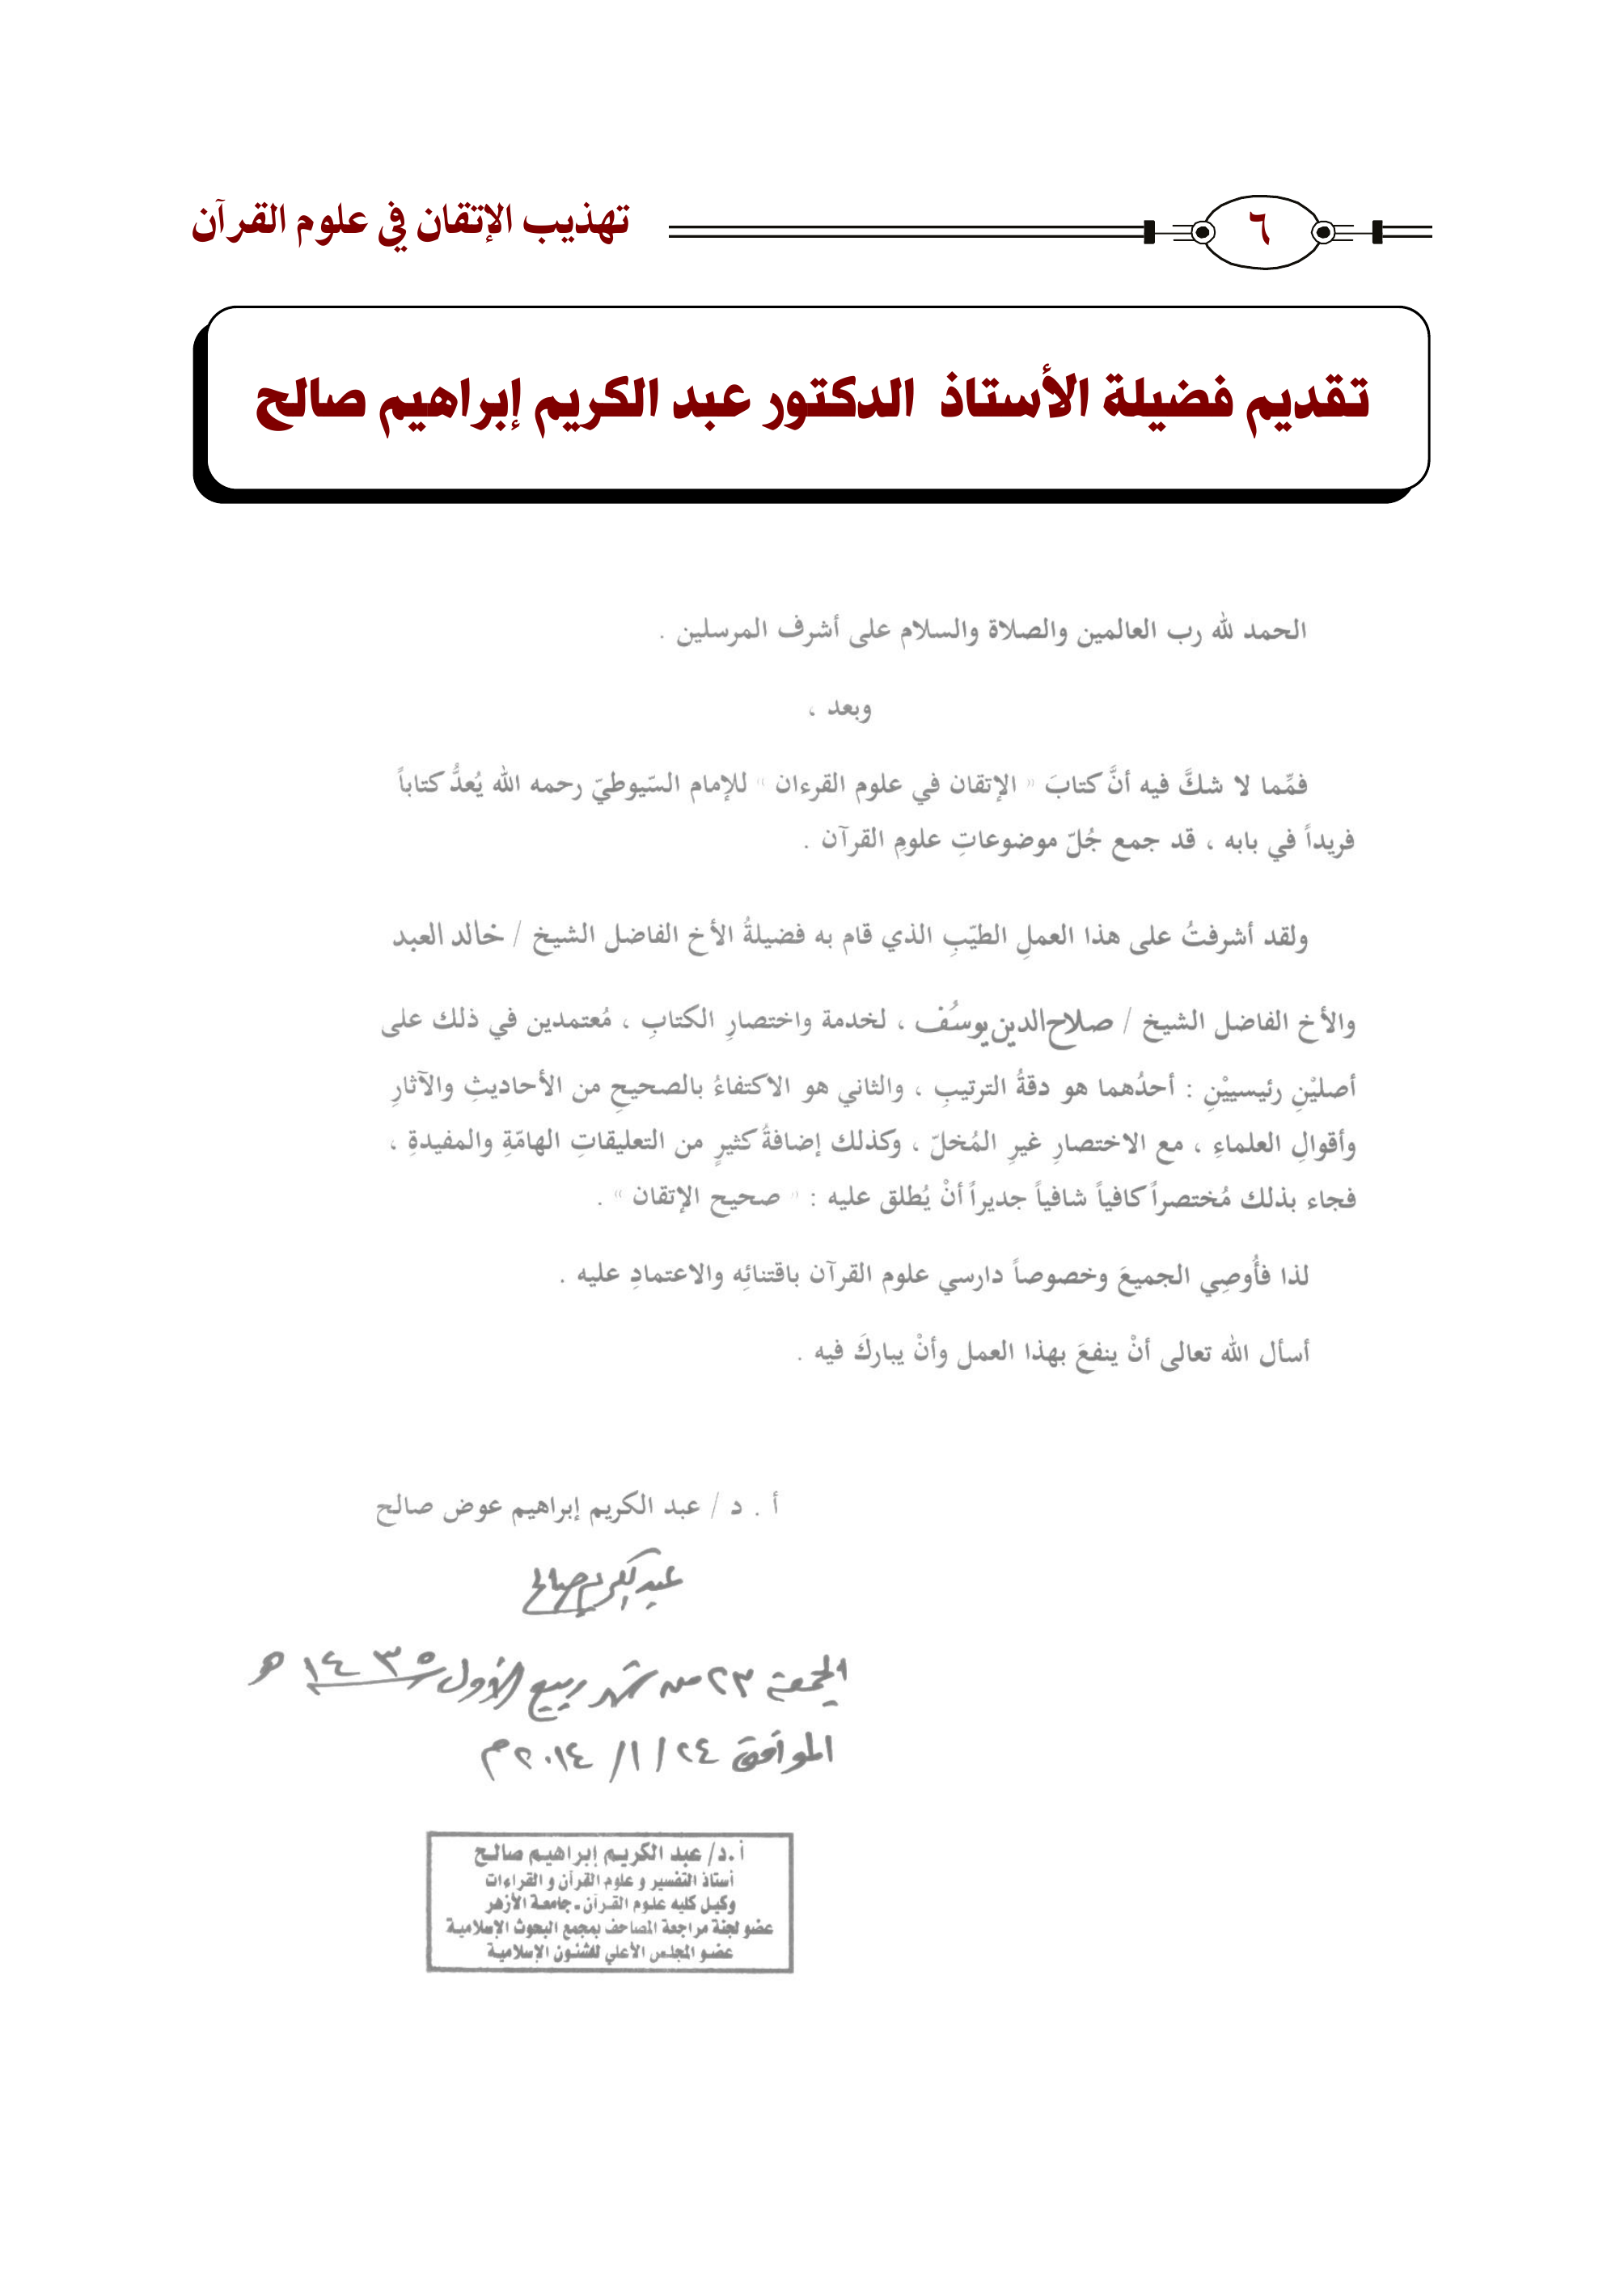 ٦
تهذيب الإتقان في علوم القرآن
تقديم فضيلة الأستاذ الدكتور عبد الكريم إبراهيم صالح
الحمد لله رب العالمين والصلاة والسلام على أشرف المرسلين .
وبعد ،
فمِّما لا شكَّ فيه أنَّ كتابَ « الإتقان في علوم القرءان » للإمام السّيوطيّ رحمه الله يُعدُّ كتاباً
فريداً في بابه ، قد جمع جُلّ موضوعاتِ علومِ القرآن .
ولقد أشرفتُ على هذا العملِ الطيّبِ الذي قام به فضيلةُ الأخ الفاضل الشيخ / خالد العبد
والأخ الفاضل الشيخ / صلاح الدين يوسُف ، لخدمة واختصارِ الكتابِ ، مُعتمدين في ذلك على
أصليْنِ رئيسييْنِ : أحدُهما هو دقةُ الترتيبِ ، والثاني هو الاكتفاءُ بالصحيحِ من الأحاديثِ والآثارِ
وأقوالِ العلماءِ ، مع الاختصارِ غيرِ المُخلّ ، وكذلك إضافةُ كثيرٍ من التعليقاتِ الهامّةِ والمفيدةِ ،
فجاء بذلك مُختصراً كافياً شافياً جديراً أنْ يُطلق عليه : « صحيح الإتقان » .
لذا فأُوصِي الجميعَ وخصوصاً دارسي علوم القرآن باقتنائِه والاعتمادِ عليه .
أسأل الله تعالى أنْ ينفعَ بهذا العمل وأنْ يباركَ فيه .
أ . د / عبد الكريم إبراهيم عوض صالح
عبد الكريم صالح
الجمعة ٢٣ من شهر ربيع الأول ١٤٣٥ هـ
الموافق ٢٤ / ١ / ٢٠١٤ م
أ.د/ عبد الكريم إبراهيم صالح
أستاذ التفسير و علوم القرآن و القراءات
وكيل كليه علوم القرآن - جامعة الأزهر
عضو لجنة مراجعة المصاحف بمجمع البحوث الإسلامية
عضو المجلس الأعلي للشئون الإسلامية